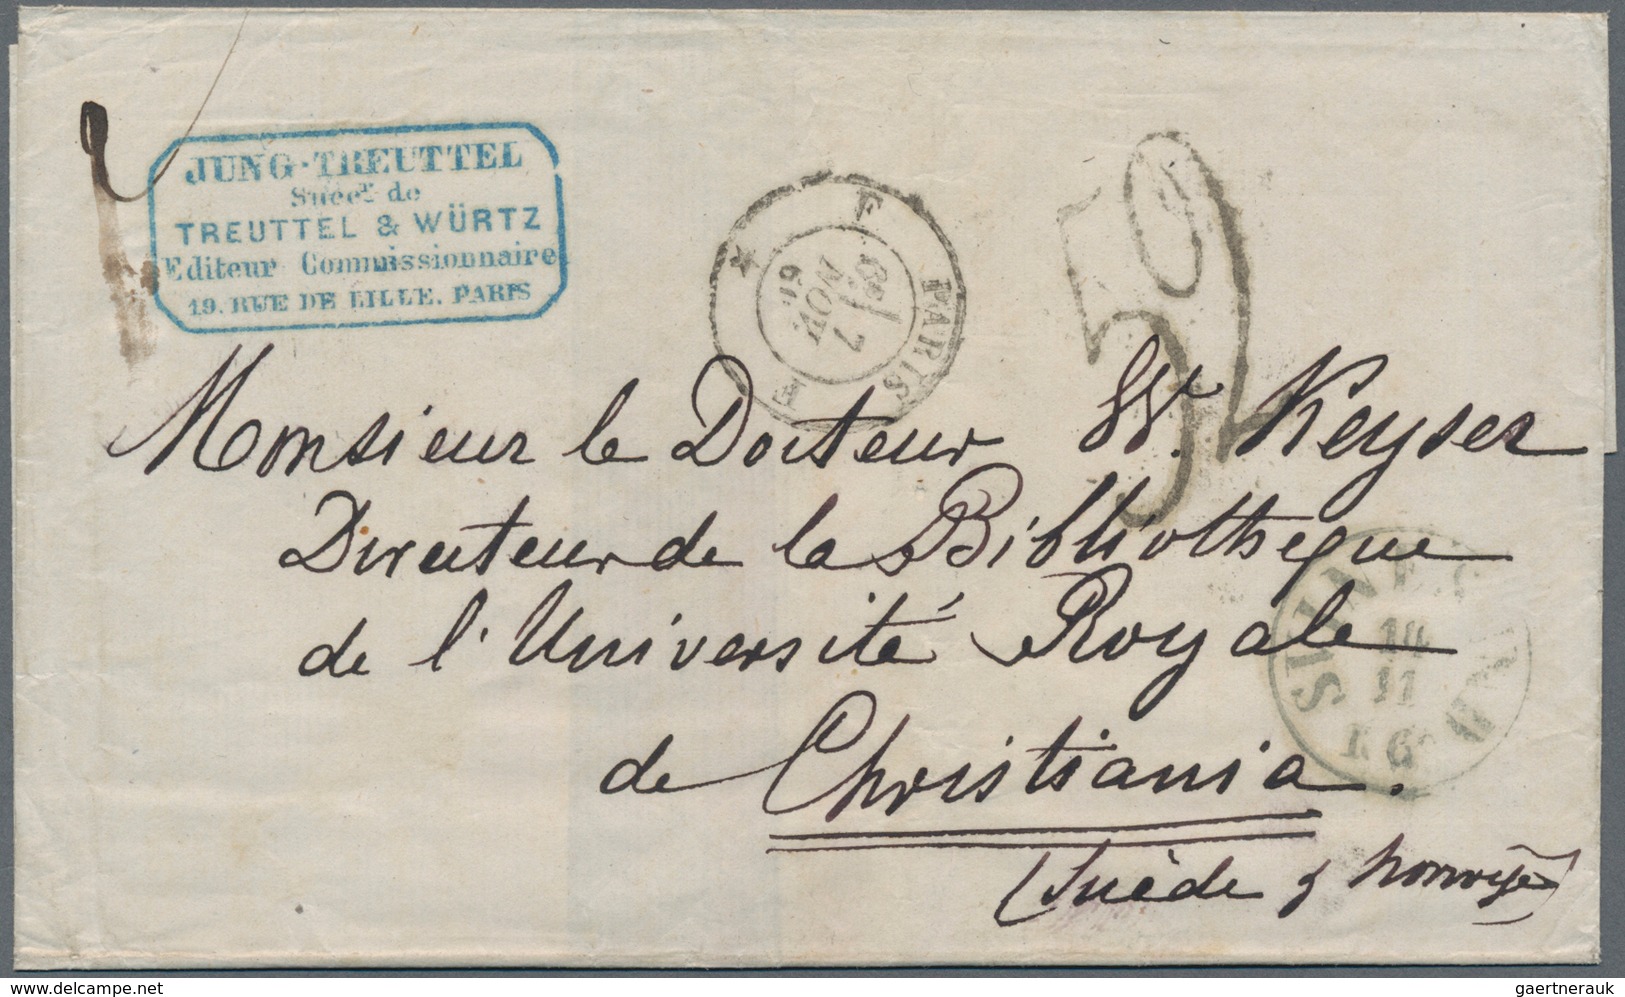 JUNG-TREUTTEL
Succr. de
TREUTTEL & WÜRTZ
Editeur Commissionnaire
19. RUE DE LILLE. PARIS
F PARIS F
7
NOV.
Monsieur le Docteur W. Keyser
Directeur de la Bibliothèque
de l'Université Royale
de Christiania.
(Suède & Norwège)
32
SVINESUND
10
11
gaertnerauk
delcampe.net